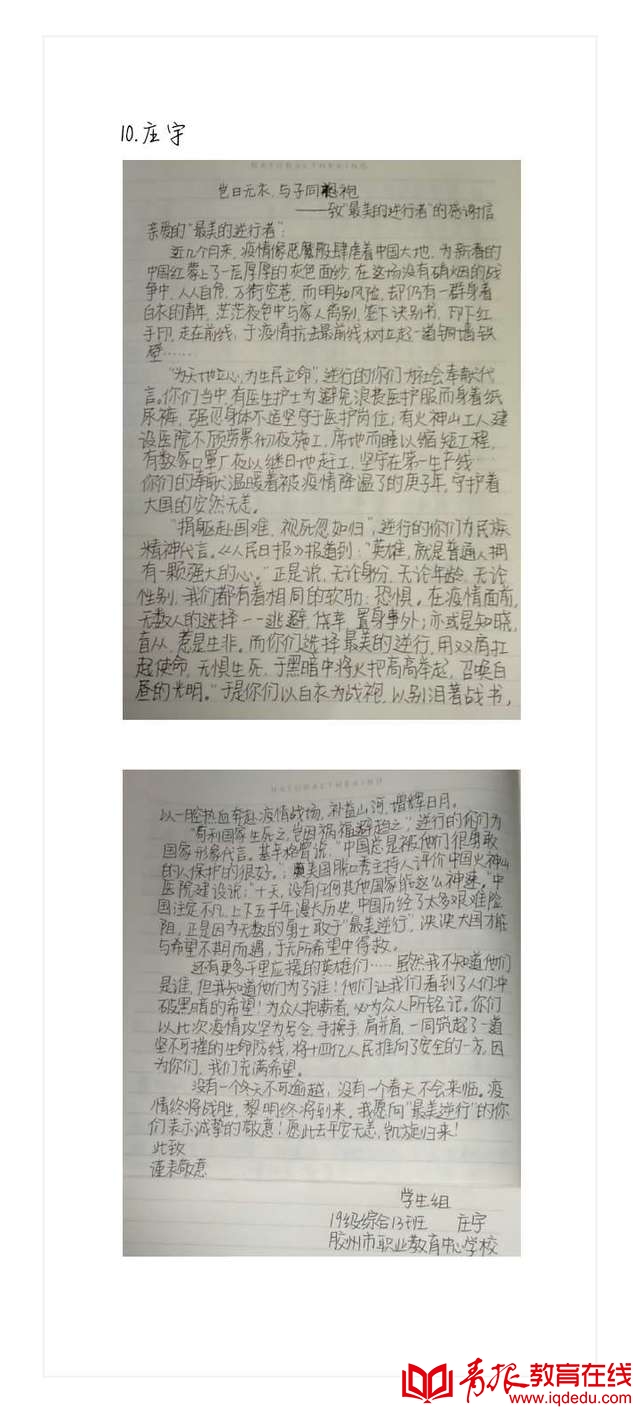 10.庄宇
NATURALTHEKING
岂曰无衣,与子同袍
——致“最美的逆行者”的感谢信
亲爱的“最美的逆行者”:
近几个月来,疫情像恶魔般肆虐着中国大地,为新春的
中国红蒙上了一层厚厚的灰色面纱,在这场没有硝烟的战
争中,人人自危,万街空巷,而明知风险,却仍有一群身着
白衣的青年,茫茫夜色中与家人离别,签下诀别书,印下红
手印,走在前线,于疫情抗击最前线树立起一道铜墙铁
壁……
“为天地立心,为生民立命”,逆行的你们为社会奉献代
言。你们当中,有医生护士为避免浪费医护服而身着纸
尿裤,强忍身体不适坚守于医护岗位;有火神山工人建
设医院不顾劳累彻夜施工,席地而睡以缩短工程,
有数家口罩厂夜以继日地赶工,坚守在第一生产线…
你们的奉献温暖着被疫情降温了的庚子年,守护着
大国的安然无恙。
“捐躯赴国难,视死忽如归”,逆行的你们为民族
精神代言。《人民日报》报道到:“英雄,就是普通人拥
有一颗强大的心。”正是说,无论身份,无论年龄,无论
性别,我们都有着相同的软肋:恐惧。在疫情面前,
无数人的选择--逃避,侥幸,置身事外;亦或是知晓,
盲从,惹是生非。而你们选择最美的逆行,用双肩扛
起使命,无惧生死,于黑暗中将火把高高举起,召唤白
昼的光明。”于是你们以白衣为战袍,以别泪著战书,
NATURALTHEKING
以一腔热血奔赴疫情战场,补益山河,增辉日月。
“苟利国家生死之,岂因祸福避趋之”,逆行的你们为
国家形象代言。基辛格曾说:“中国总是被他们很勇敢
的人保护的很好。”;美国脱口秀主持人评价中国火神山
医院建设说:“十天,没有任何其他国家能这么神速。”中
国注定不凡,上下五千年漫长历史,中国历经了太多艰难险
阻,正是因为无数的勇士敢于“最美逆行”,泱泱大国才能
与希望不期而遇,于无所希望中得救。
还有更多千里应援的英雄们……虽然我不知道他们
是谁,但我知道他们为了谁!他们让我们看到了人们冲
破黑暗的希望!为众人抱薪者,必为众人所铭记。你们
以此次疫情攻坚为号令,手挽手,肩并肩,一同筑起了一道
坚不可摧的生命防线,将十四亿人民推向了安全的一方,因
为你们,我们充满希望。
没有一个冬天不可逾越,没有一个春天不会来临。疫
情终将战胜,黎明终将到来。我愿向“最美逆行”的你
们表示诚挚的敬意!愿此去平安无恙,凯旋归来!
此致
谨表敬意
学生组
19级综合13班 庄宇
胶州市职业教育中心学校
青报教育在线
www.iqdedu.com